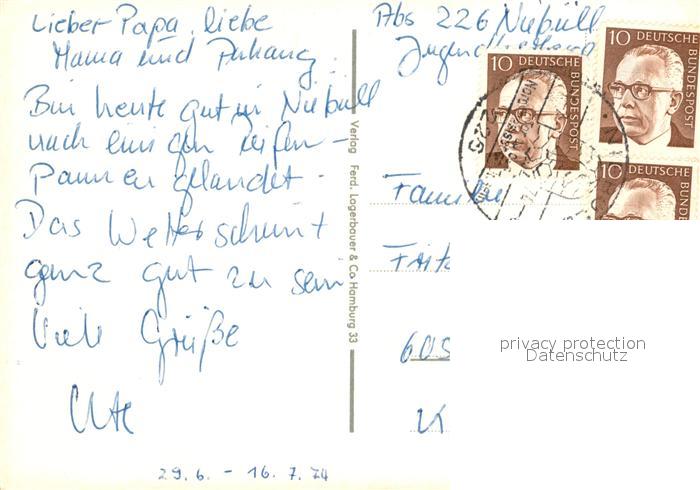 Lieber Papa, liebe
Mama und Anhang,
Bin heute gut in Niebüll
nach einigen Reifen-
Pannen gelandet.
Das Wetter scheint
ganz gut zu sein
Viele Grüße
Ute
29.6. - 16.7.74
Verlag Ferd. Lagerbauer & Co Hamburg 33
Abs 226 Niebüll
10 DEUTSCHE BUNDESPOST
10 DEUTSCHE BUNDESPOST
10 DEUTSCHE
Familie
Fritz
605
privacy protection
Datenschutz